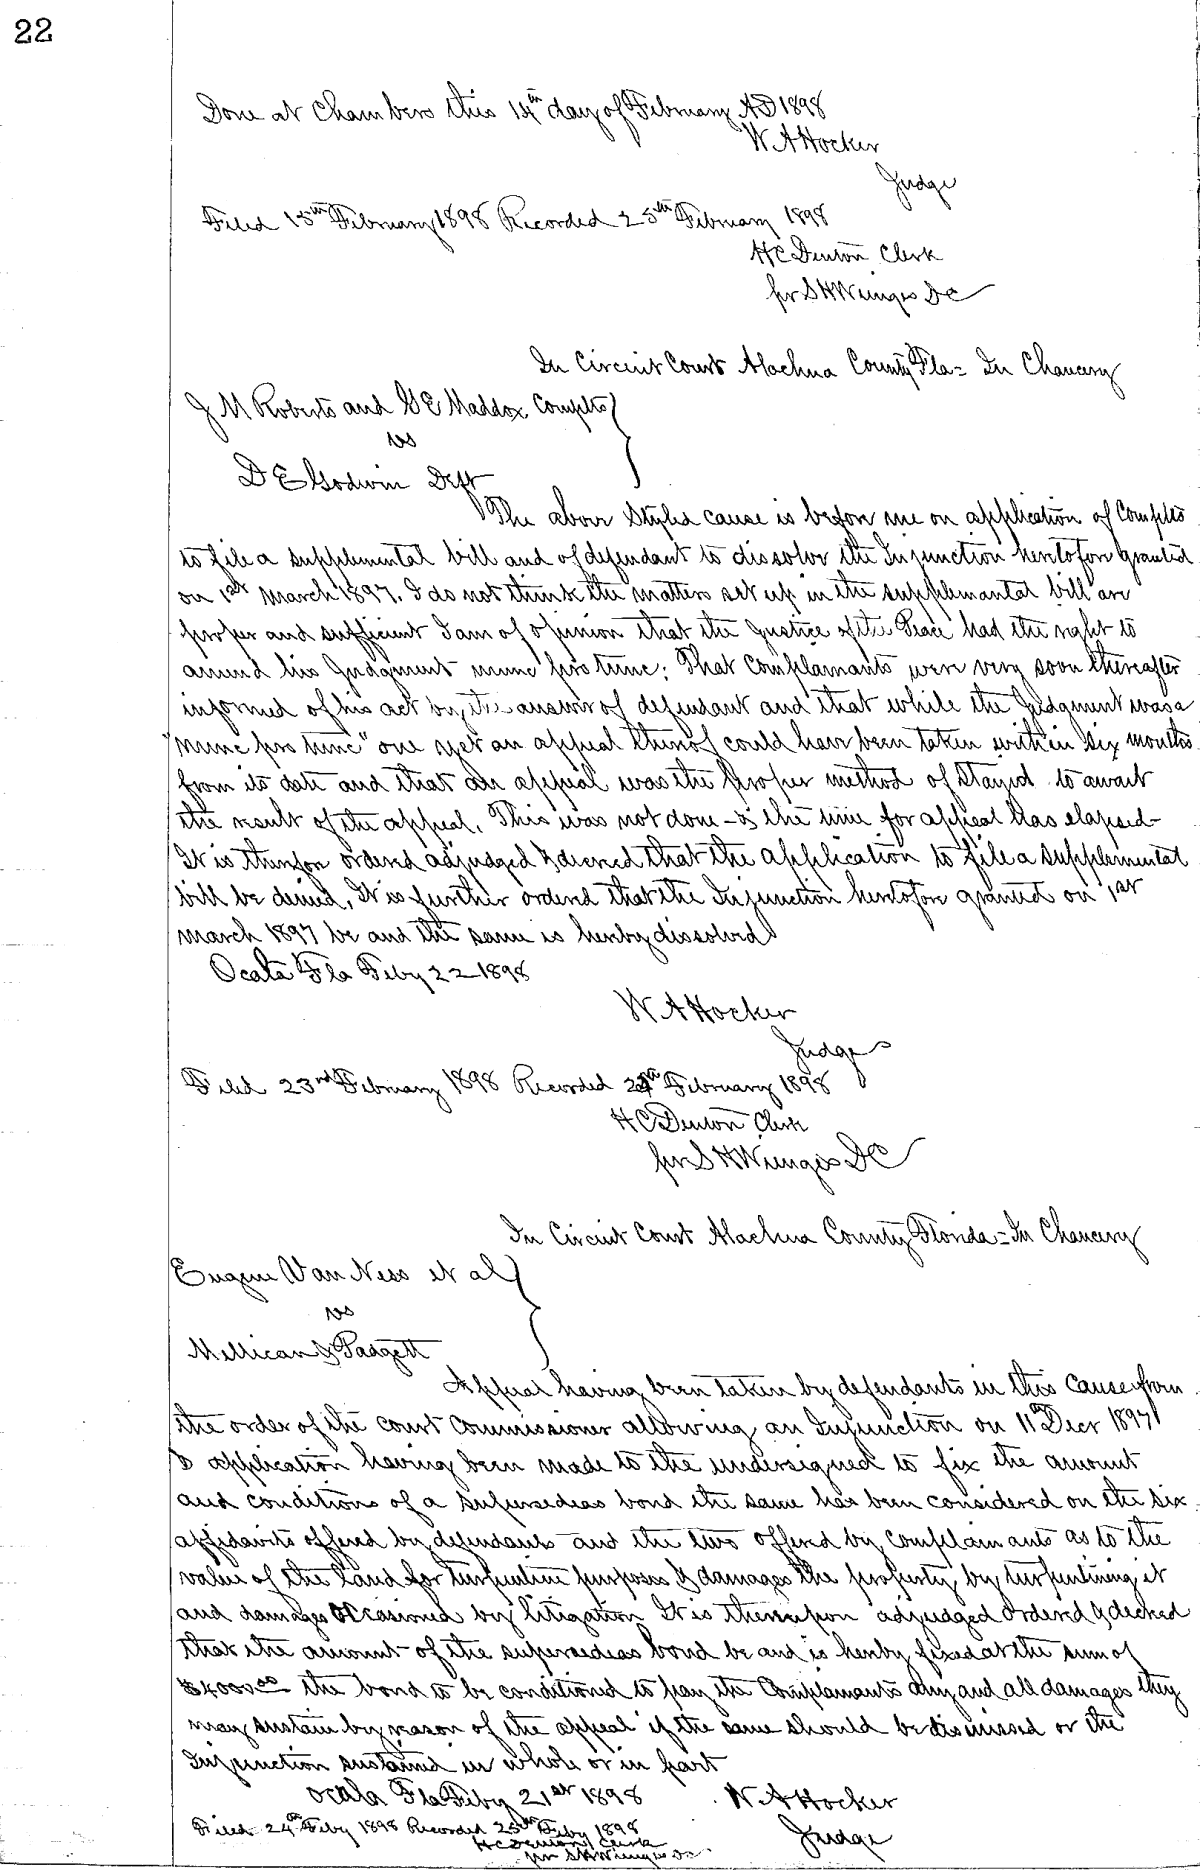 22
Done at Chambers this 14th day of February AD 1898
W A Hocker
Judge
Filed 15th February 1898 Recorded 25th February 1898
H C Denton Clerk
per S H Wienges DC
In Circuit Court Alachua County Fla = In Chancery
J M Roberts and G E Maddox Complts
vs
D E Godwin Deft
The above Styled cause is before me on application of Complts
to file a supplemental bill and of defendant to dissolve the Injunction heretofore granted
on 1st March 1897. I do not think the matters set up in the supplemental bill are
proper and sufficient I am of opinion that the Justice of the Peace had the right to
amend his Judgment nunc pro tunc; That Complainants were very soon thereafter
informed of his act by the answer of defendant and that while the Judgment was a
"nunc pro tunc" one yet an appeal thereof could have been taken within six months
from its date and that an appeal was the proper method of Stayed to await
the result of the appeal. This was not done - & the time for appeal has elapsed -
It is therefore ordered adjudged & decreed that the application to file a supplemental
bill be denied, It is further ordered that the Injunction heretofore granted on 1st
March 1897 be and the same is hereby dissolved
Ocala Fla Feby 22 1898
W A Hocker
Judge
Filed 23rd February 1898 Recorded February 1898
H C Denton Clerk
per S H Wienges DC
In Circuit Court Alachua County Florida = In Chancery
Eugene Van Ness et al
vs
Mellican & Padgett
Appeal having been taken by defendants in this cause from
the order of the court Commissioner allowing an Injunction on 11th Decr 1897
& application having been made to the undersigned to fix the amount
and conditions of a supersedeas bond the same has been considered on the six
affidavits offered by defendants and the two offered by Complainants as to the
value of the land for turpentine purposes & damages the property by turpentining it
and damages occasioned by litigation It is thereupon adjudged ordered & decreed
that the amount of the supersedeas bond be and is hereby fixed at the sum of
$4000.00 the bond to be conditioned to pay the Complainants any and all damages they
may sustain by reason of the appeal if the same should be dismissed or the
Injunction sustained in whole or in part
Ocala Fla Feby 21st 1898 W A Hocker
Judge
Filed 24th Feby 1898 Recorded 25th Feby 1898
H C Denton Clerk
per S H Wienges DC